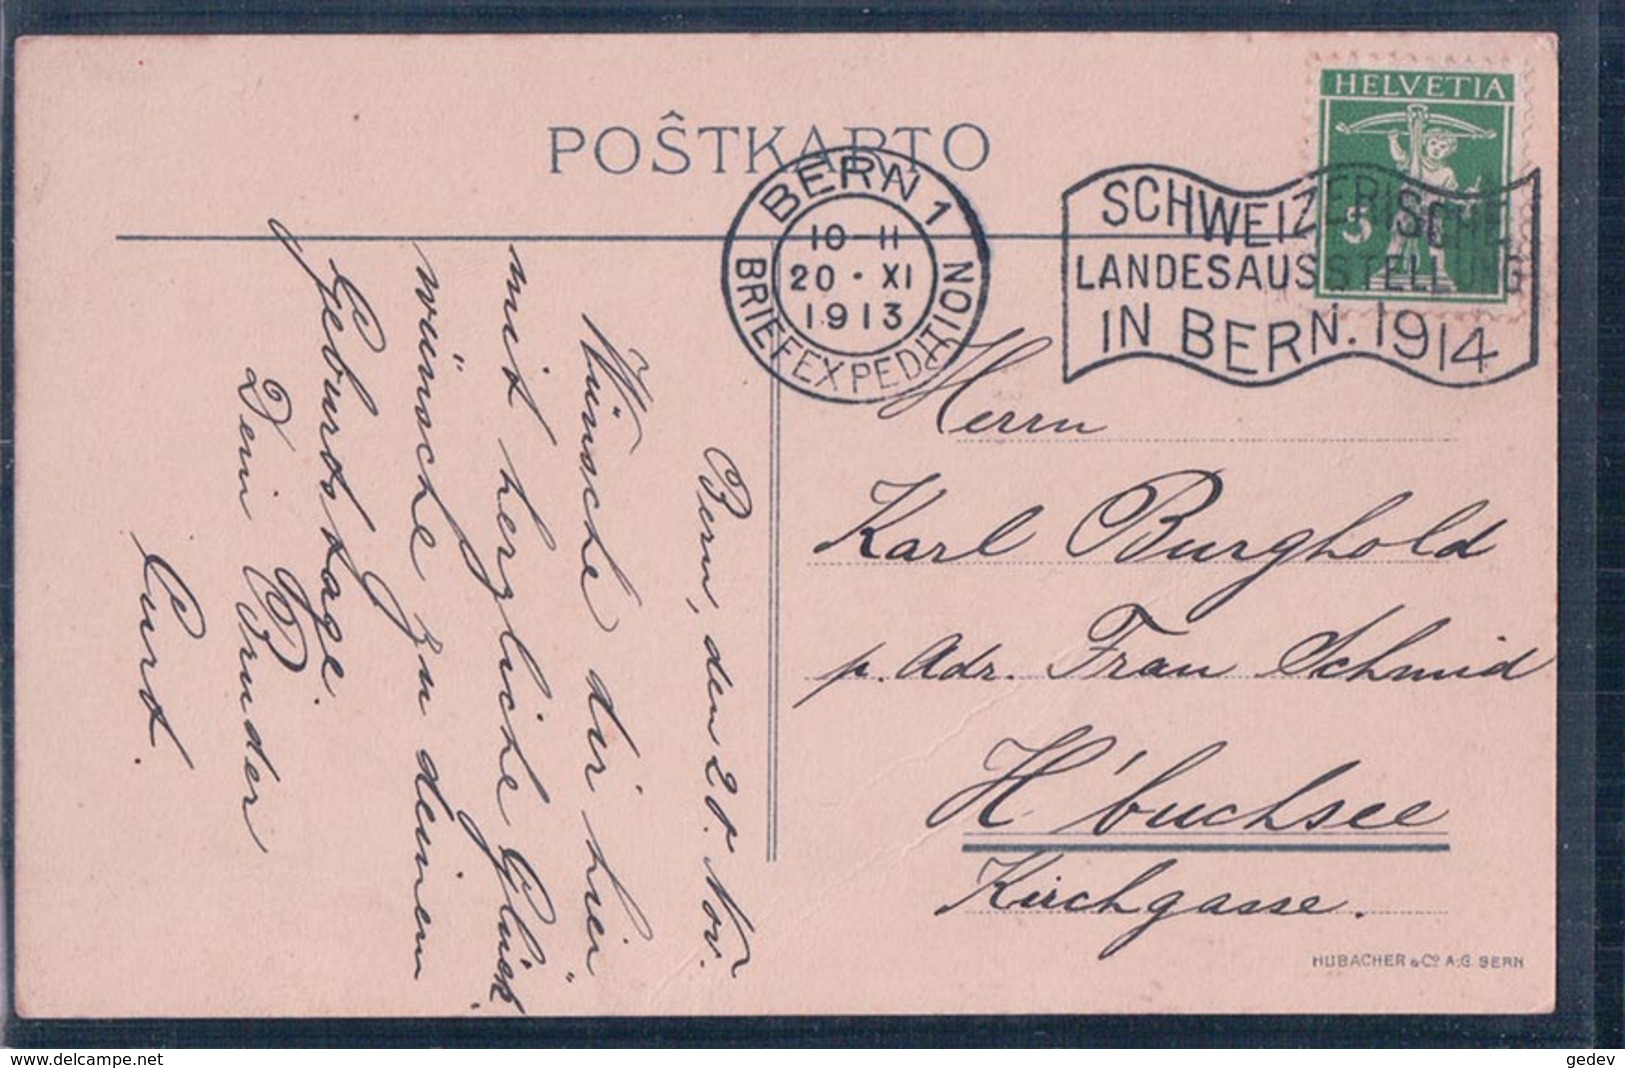 POŜTKARTO
HELVETIA
5
BERN 1
10-11
20 · XI
1913
BRIEFEXPEDITION
SCHWEIZERISCHE
LANDESAUSSTELLUNG
IN BERN. 1914
Bern, den 20. Nov.
Wünsche dir hier-
mit herzliche Glück-
wünsche zu deinem
Geburtstage.
Dein Bruder
Curt.
Herrn
Karl Burghold
p. Adr. Frau Schmid
H'buchsee
Kirchgasse.
HUBACHER & Co A.G. BERN
www.delcampe.net
gedev